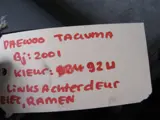 DAEWOO TACUMA
Bj: 2001
KLEUR: 92U
LINKS ACHTERDEUR
RAMEN